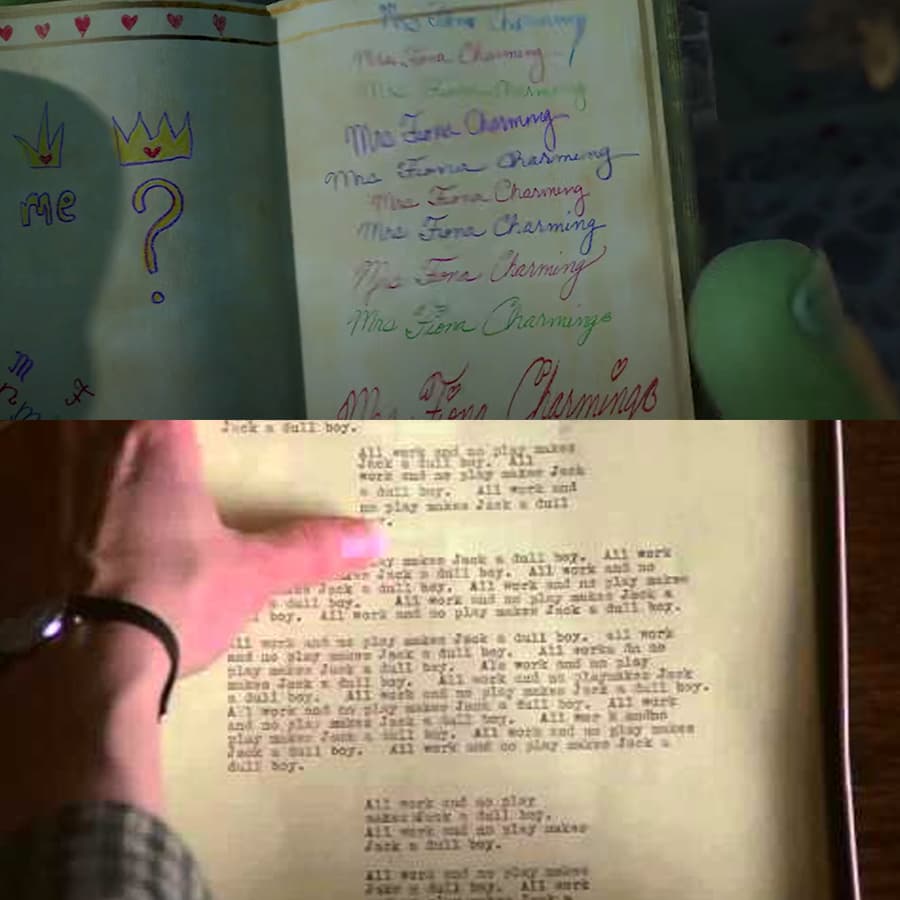 me
?
Mrs Fiona Charming
Mrs Fiona Charming
Mrs Fiona Charming
Mrs Fiona Charming
Mrs Fiona Charming
Mrs Fiona Charming
Mrs Fiona Charming
Mrs Fiona Charming
Mrs Fiona Charming
Mrs Fiona Charming
Jack a dull boy.
All work and no play makes
Jack a dull boy. All
work and no play makes Jack
a dull boy. All work and
no play makes Jack a dull
makes Jack a dull boy. All work
Jack a dull boy. All work and no
Jack a dull boy. All work and no play makes
a dull boy. All work and no play makes Jack a
boy. All work and no play makes Jack a dull boy.
All work and no play makes Jack a dull boy. all work
and no play makes Jack a dull boy. All works
play makes Jack a dull boy. All work and no play
makes Jack a dull boy. All work and no playmakes Jack
a dull boy. All work and no play makes Jack a dull boy.
All work and no play makes Jack a dull boy. All work
and no play makes Jack a dull boy. All
play makes Jack a dull boy. All work and no play makes
Jack a dull boy. All work and no play makes Jack a
dull boy.
All work and no play
makes Jack a dull boy.
All work and no play makes
Jack a dull boy.
All work and no play makes
Jack a dull boy. All work